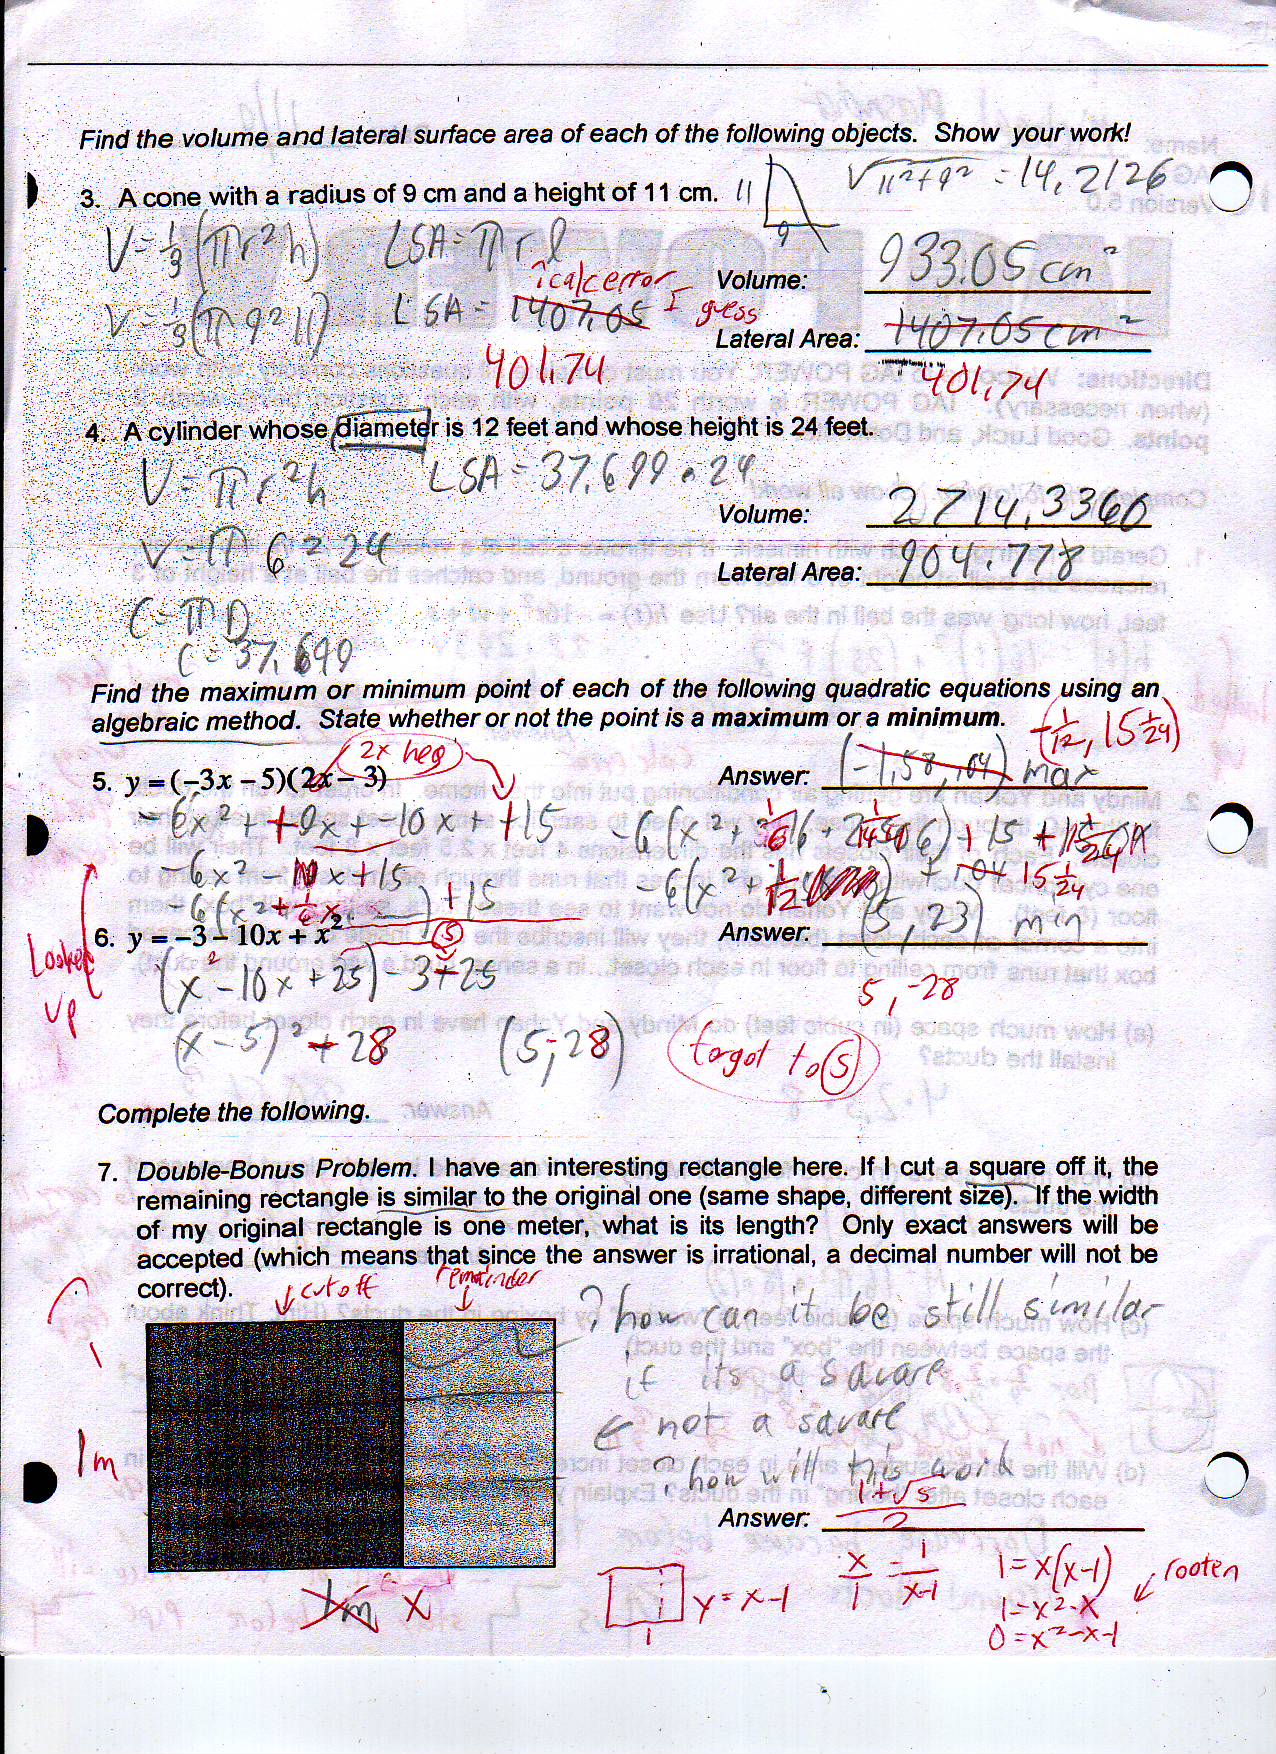 Find the volume and lateral surface area of each of the following objects. Show your work!
3. A cone with a radius of 9 cm and a height of 11 cm.
11
9
√11²+9² = 14.2126
V = 1/3(πr²h)
LSA = πrl
V = 1/3(π 9² 11)
LSA = 1407.05
? calc error I guess
401.74
Volume: 933.05 cm²
Lateral Area: 1407.05 cm²
401.74
4. A cylinder whose diameter is 12 feet and whose height is 24 feet.
V = πr²h
LSA = 37.699 · 24
V = π 6² 24
Volume: 2714.3360
Lateral Area: 904.778
C = πD
C = 37.699
Find the maximum or minimum point of each of the following quadratic equations using an
algebraic method. State whether or not the point is a maximum or a minimum.
(-1/12, 15 1/24)
2x neg
5. y = (−3x − 5)(2x − 3)
Answer: (-1.58, .04) max
-6x² + 9x + -10x + +15
-6x² - x + 15
-6(x² + 1/6 x ) + 15
15 1/24
Looked up
6. y = −3 − 10x + x²
Answer: (5, 23) min
(x² - 10x + 25) 3 + 25
5, -28
(x - 5)² + 28
(5, -28)
forgot to S
Complete the following.
7. Double-Bonus Problem. I have an interesting rectangle here. If I cut a square off it, the
remaining rectangle is similar to the original one (same shape, different size). If the width
of my original rectangle is one meter, what is its length? Only exact answers will be
accepted (which means that since the answer is irrational, a decimal number will not be
correct).
cut off
remainder
? how can it be still similar
if its a square
← not a square
? how will this work
1m
Answer: 1+√5/2
1m x
1
y = x-1
x/1 = 1/x-1
1 = x(x-1)
1 = x² - x
0 = x² - x - 1
rooten